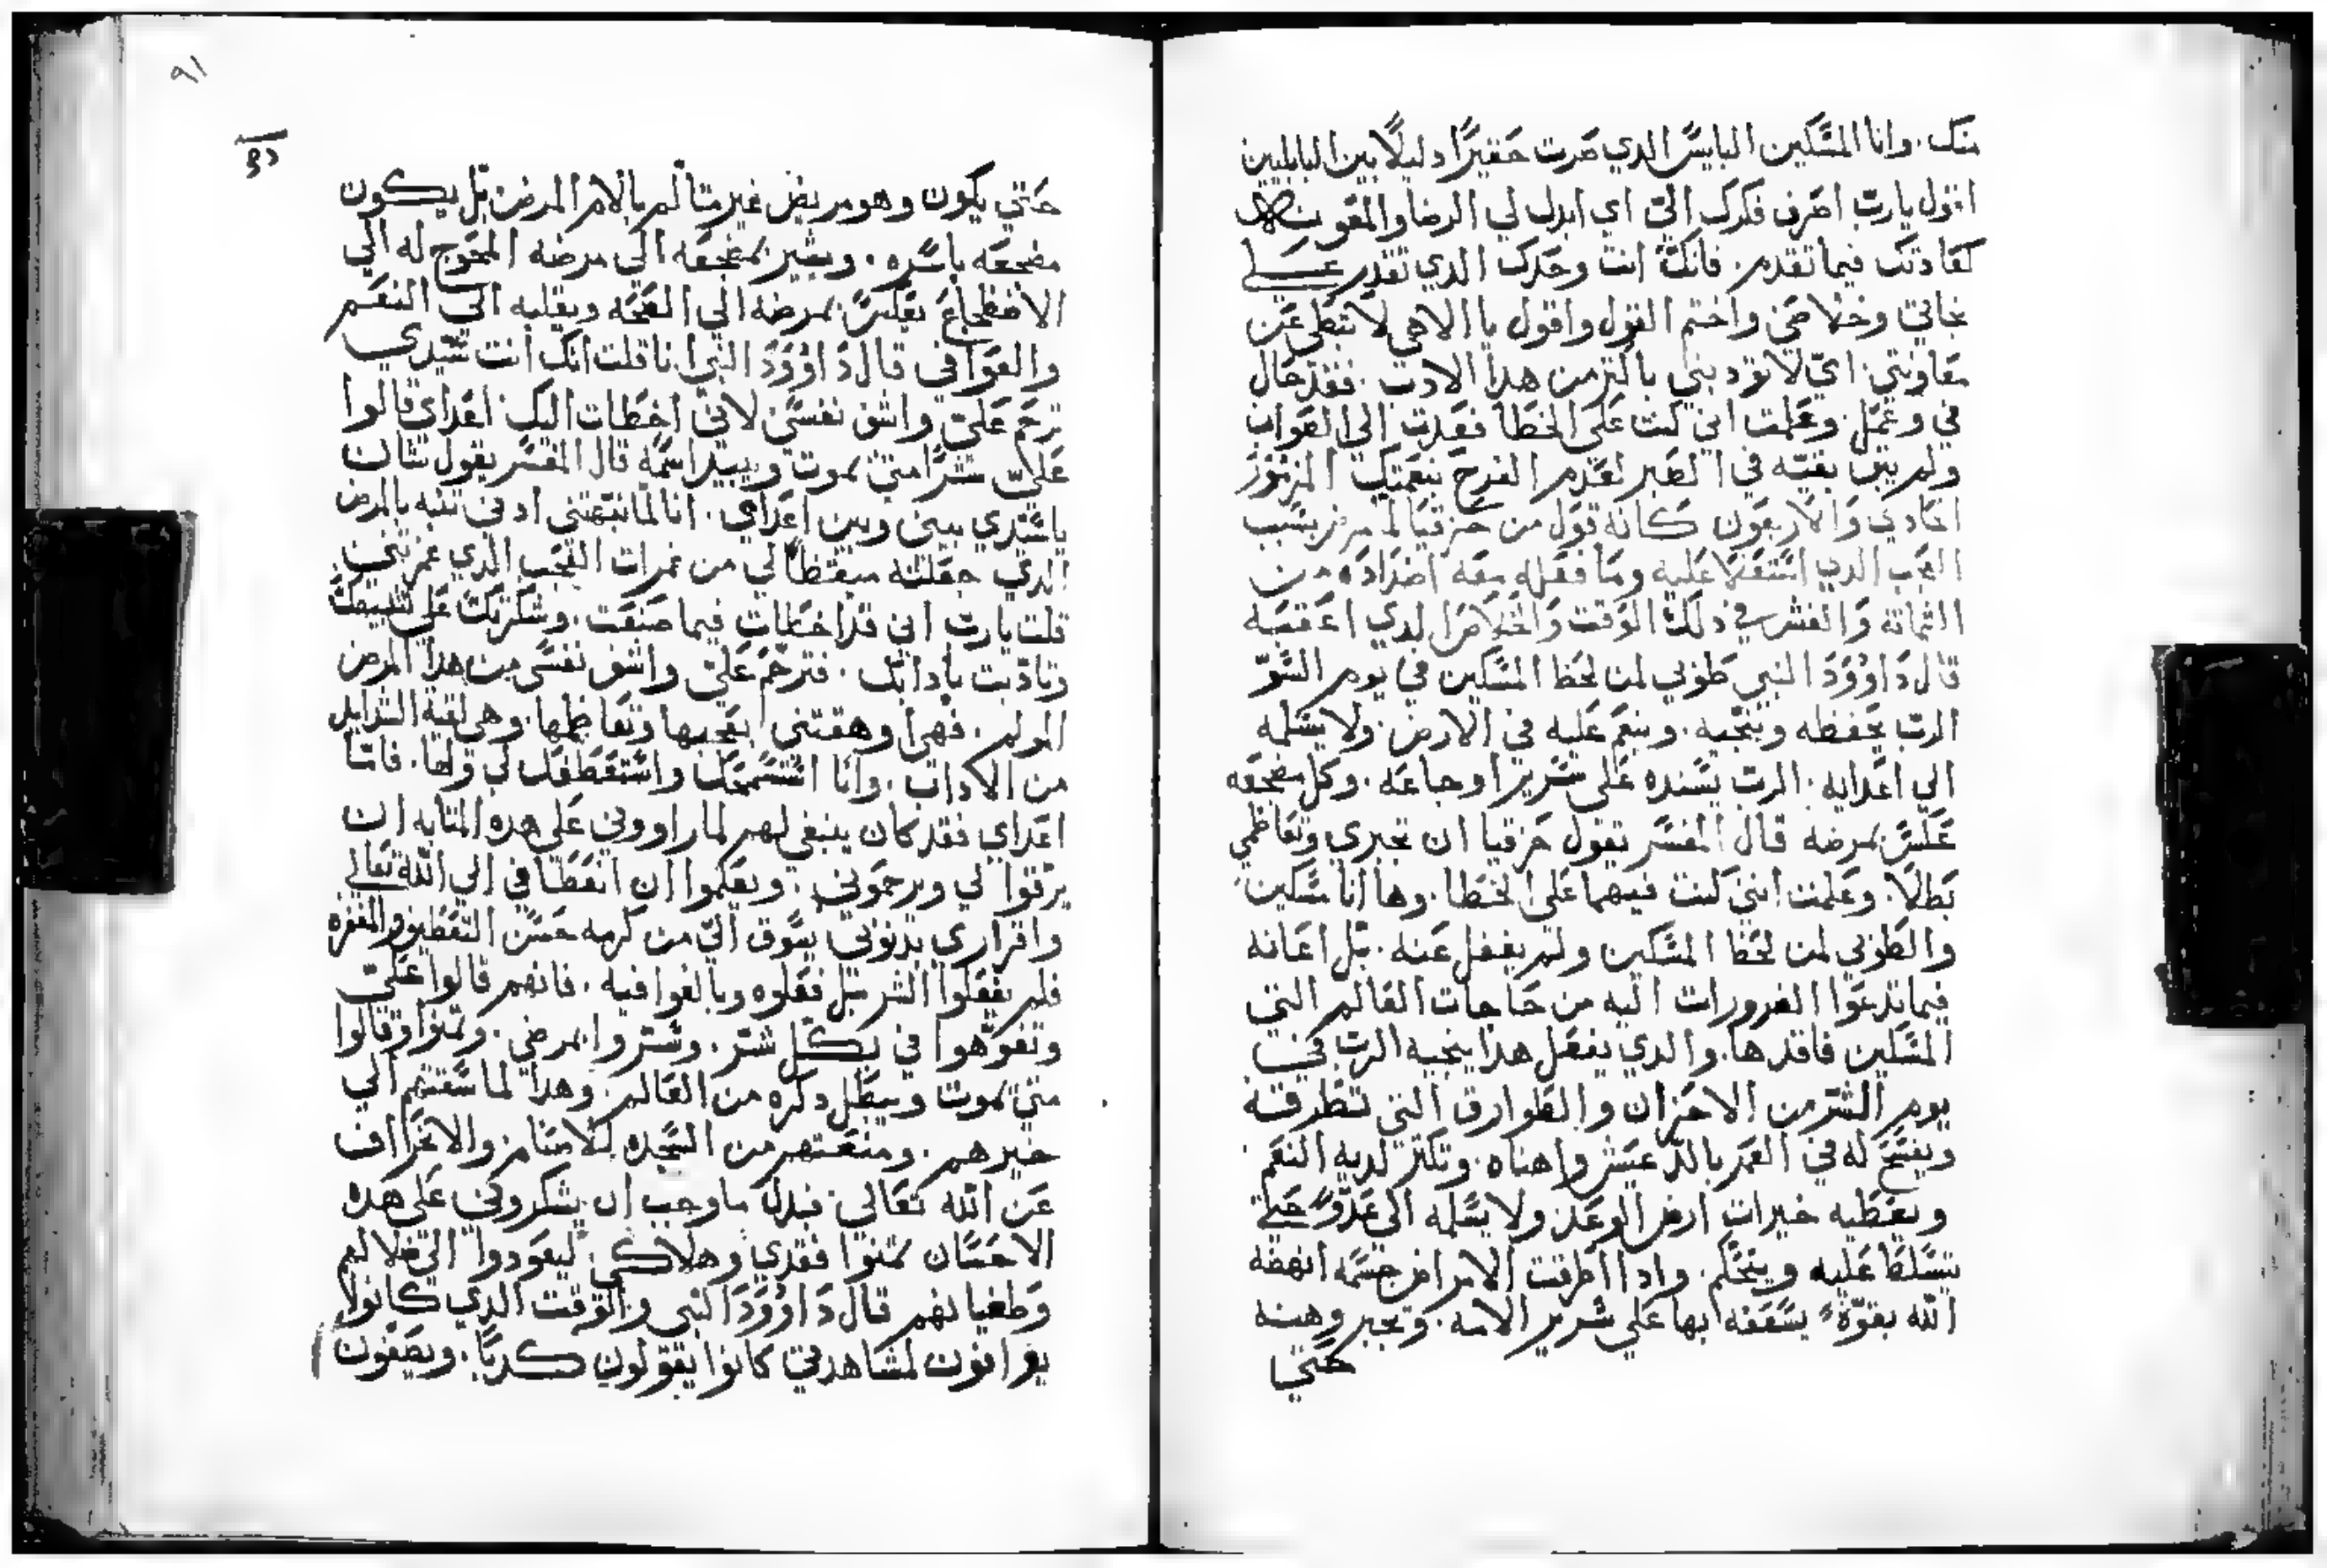 منك. وانا المسكين البايس الدي صرت حقيرًا دليلًا بين البابليين
اقول يارب اصرف فكرك اليّ اي ابدل لي الرضا والمعونه
كعادتك فيما تقدم. فانك انت وحدك الدي تقدر علي
نجاتي وخلاصي واختم القول واقول يا الاهي لا تبطي عن
معاونتي. اي لا تودبني باكتر من هدا الادب. فقد حال
في وعمل وعلمت اني كنت علي الخطا فعدت الي الصواب
ولم يبق بقيه في الصبر لعدم الفرح بنعمتك المزمور
الحادي والاربعون كانه قول من حزقيا لما مرض بسبب
العجب الدي استعلا عليه وما فعله معه اضداده من
الشماته والغش في دلك الوقت والخلاص الدي اعقبه
قال داوود النبي طوبي لمن لحظ المسكين في يوم السو
الرب يحفظه وينجيه. وينعم عليه في الارض ولا يسلمه
الي اعدايه. الرب يسنده علي سرير اوجاعه. وكل مضجعه
عكس بمرضه قال المفسر يقول حزقيا ان تجبري وتعاظمي
بطلا. وعلمت انني كنت فيهما علي الخطا. وها انا مسكين
والطوبي لمن لحظ المسكين ولم يغفل عنه. بل اعانه
فيما تدعوا الضرورات اليه من حاجات العالم التي
المسكين فاقدها. والدي يفعل هدا ينجيه الرب في
يوم الشر من الاحزان والطوارق التي تطرقه
ويفسح له في العمر بالد عيش واهناه. وتكتر لديه النعم
ويعطيه خيرات ارض الوعد ولا يسلمه الي عدو حتي
يتسلط عليه ويتحكم. وادا اطرقت الامراض جسمه انهضه
الله بقوة يسعفه بها علي سرير الامه. وتجبر وهنه
حتي
٩١
حتي يكون وهو مريض غير متالم بالام المرض بل يكون
مضجعه باسره. ويشير بمضجعه الي مرضه المحوج له الي
الاضطجاع بعكس بمرضه الي الصحه ويقلبه الي النعم
والعوافي قال داوود النبي انا قلت انك انت سيدي
ترحم علي واشف نفسي لاني اخطات اليك اعداي قالوا
عليّ شرًا متي يموت ويبيد اسمه قال المفسر يقول شتان
يا سيدي بيني وبين اعداي. انا لما نبهتني ادني تنبه بالمرض
الدي جعلته ميقظا لي من غمرات العجب الدي غمرتني
قلت يارب اني قد اخطات فيما صنعت. وشكرتك علي
وتادبت بادابك. فترحم علي واشف نفسي من هدا المرض
المولم. بعجبها وتعاظمها. وهي لقبة الشدايد
من الاداب. وانا واستعطفك لي ولها. فاما
اعداي فقد كان ينبغي لهم لما راووني علي هده المتابه ان
يرقوا لي ويرحموني. ويعلموا ان انعطافي الي الله تعالي
واقراري بدنوبي يسوق اليّ من كرمه حسن التعطف والمغفره
فلم يفعلوا الشر بل فعلوه وبالغوا فيه. فانهم قالوا عليّ
وتفوهوا في بكل شر. وسروا بمرضي. وتمنوا وقالوا
متي يموت ويبطل دكره من العالم. وهدا لما سقتهم الي
خيرهم. ومنعتهم من السجده للاصنام والانحراف
عن الله تعالي. فبدل ما وجب ان يشكروني علي هده
الاحسان تمنوا فقدي وهلاكي ليعودوا الي ضلالهم
وطغيانهم قال داوود النبي والوقت الدي كانوا
يوافون لمشاهدتي كانوا يقولون كدبًا. ويصفون